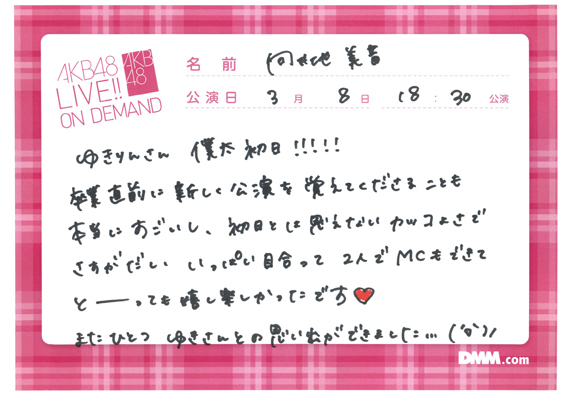 AKB48
LIVE!!
ON DEMAND
AKB
48
名前 向井地 美音
公演日 3月 8日 18:30 公演
ゆきりんさん 僕太初日!!!!!
卒業直前に新しく公演を覚えてくださることも
本当にすごいし、初日とは思えないカッコよさで
さすがだしい いっぱい目合って 2人でMCもできて
と──っても嬉し楽しかったです❤
またひとつ ゆきさんとの思い出ができました…
DMM.com